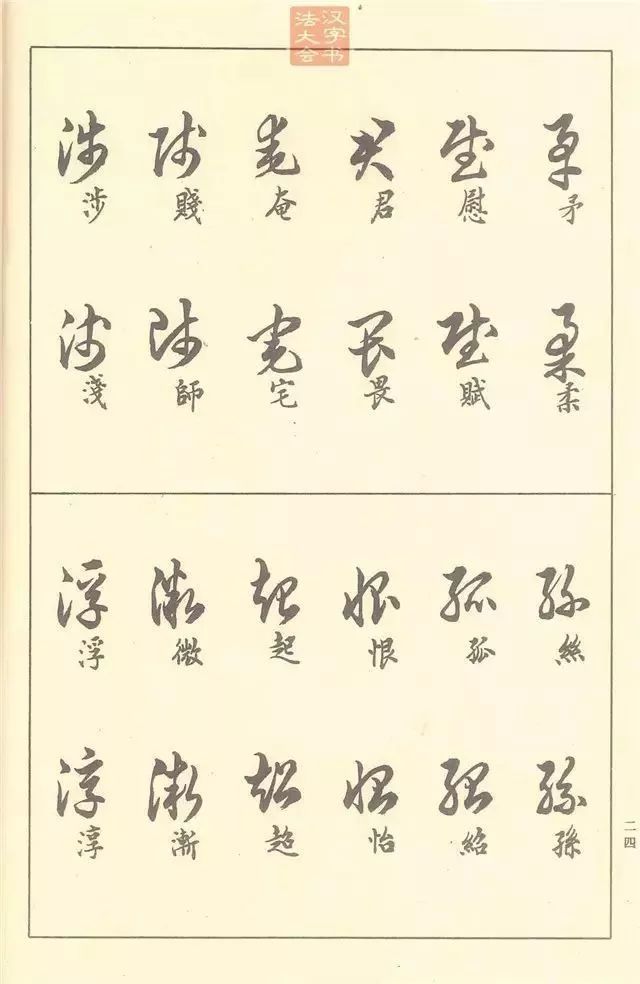 汉字书
法大会
矛 慰 君 奄 賤 涉
柔 賦 畏 宅 師 淺
絲 孤 恨 起 微 浮
孫 紹 怡 超 漸 淳
二四